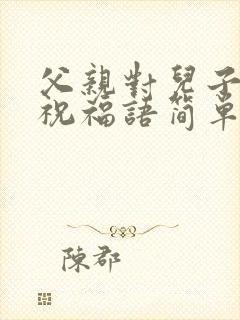 父親對兒子
祝福語簡單
陳郡